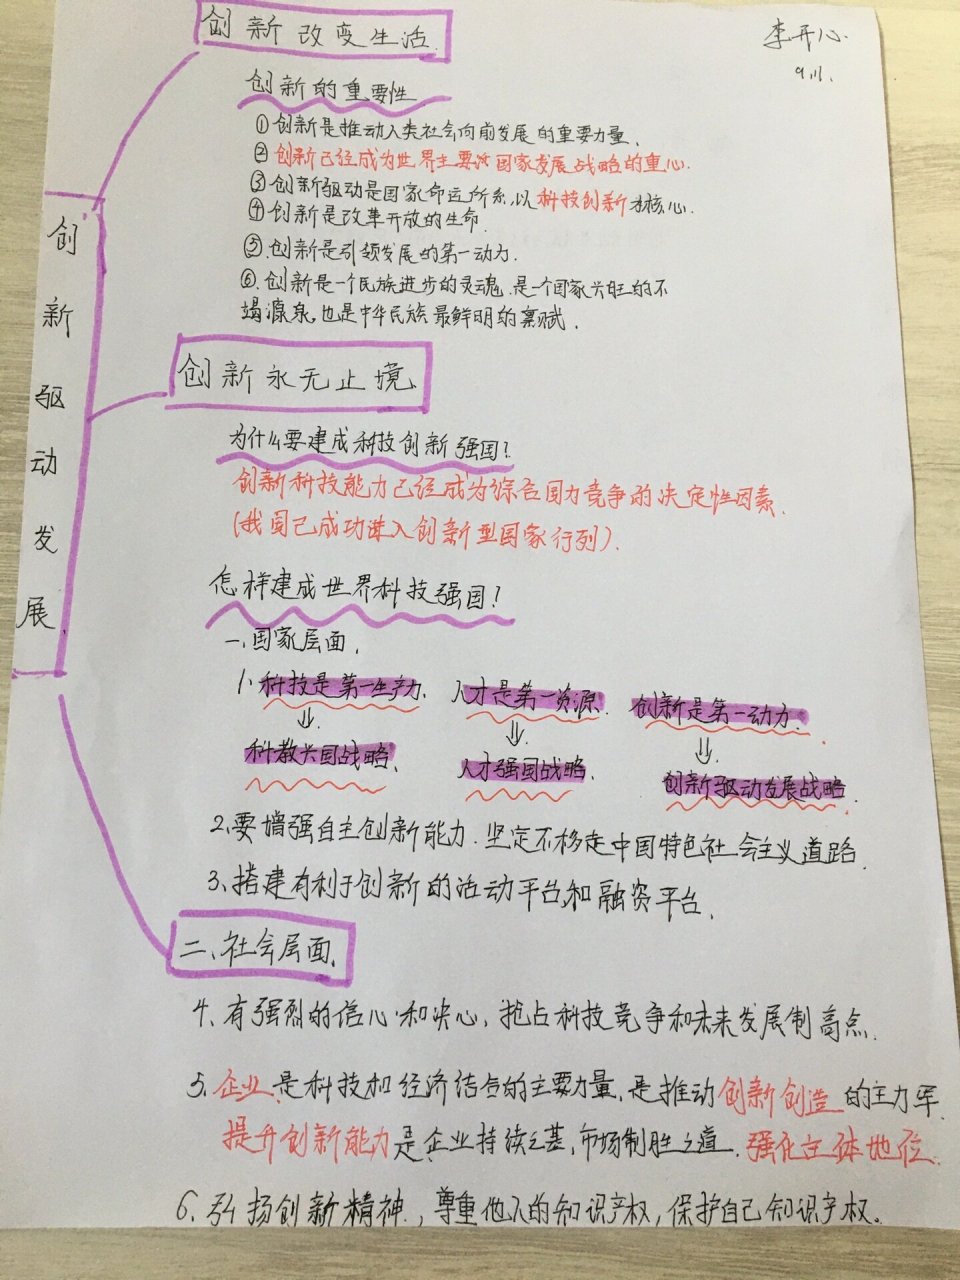 创新改变生活.
李开心.
9.11.
创新的重要性
①创新是推动人类社会向前发展的重要力量.
②创新已经成为世界主要国家发展战略的重心.
③创新驱动是国家命运所系.以科技创新为核心.
④创新是改革开放的生命.
⑤.创新是引领发展的第一动力.
⑥.创新是一个民族进步的灵魂.是一个国家兴旺的不
竭源泉,也是中华民族最鲜明的禀赋.
创新驱动发展
创新永无止境、
为什么要建成科技创新强国?
创新科技能力已经成为综合国力竞争的决定性因素.
(我国已成功进入创新型国家行列).
怎样建成世界科技强国?
一、国家层面.
1、科技是第一生产力. 人才是第一资源. 创新是第一动力.
⇓ ⇓ ⇓
科教兴国战略. 人才强国战略. 创新驱动发展战略.
2、要增强自主创新能力.坚定不移走中国特色社会主义道路.
3、搭建有利于创新的活动平台和融资平台.
二、社会层面、
4、有强烈的信心和决心、抢占科技竞争和未来发展制高点.
5、企业是科技和经济结合的主要力量,是推动创新创造的主力军.
提升创新能力是企业持续之基,市场制胜之道.强化主体地位.
6、弘扬创新精神,尊重他人的知识产权,保护自己知识产权。